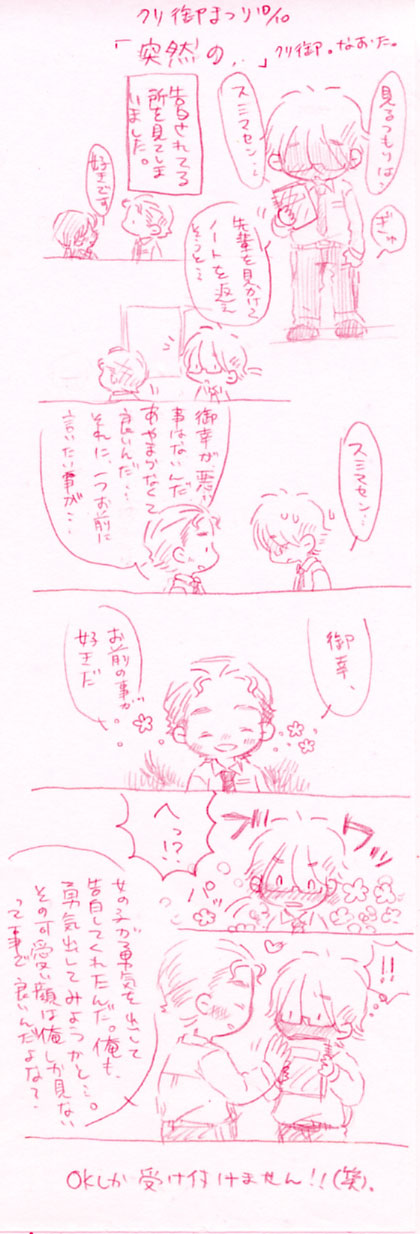 クリ御まつり10/10
「突然の…」クリ御。なおた。
見るつもりは…
スミマセン…
ぎゅ
告白されてる
所を見てしま
いました。
好きです
先輩を見かけて
ノートを返え
そうと…
スミマセン…
御幸が悪い
事はないんだ
あやまらなくて
良いんだ…
それに、一つお前に
言いたい事が…
御幸、
お前の事が
好きだ
。
へっ!?
ブワッ
パッ
!!
女の子が勇気を出して
告白してくれたんだ。俺も、
勇気出してみようかと…。
その可愛い顔は俺しか見ない
って事で良いんだよな?
OKしか受け付けません!!(笑)。